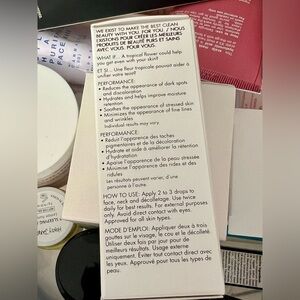 WE EXIST TO MAKE THE BEST CLEAN
BEAUTY WITH YOU. FOR YOU. / NOUS
EXISTONS POUR CRÉER LES MEILLEURS
PRODUITS DE BEAUTÉ PURS ET SAINS
AVEC VOUS. POUR VOUS.
WHAT IF... A tropical flower could help
you get even with your skin?
ET SI... Une fleur tropicale pouvait aider à
unifier votre teint?
PERFORMANCE:
• Reduces the appearance of dark spots
and discoloration
• Hydrates and helps improve moisture
retention
• Soothes the appearance of stressed skin
• Minimizes the appearance of fine lines
and wrinkles
Individual results may vary.
PERFORMANCE:
• Réduit l'apparence des taches
pigmentaires et de la décoloration
• Hydrate et aide à améliorer la rétention
d'hydratation
• Apaise l'apparence de la peau stressée
• Minimise l'apparence des rides et des
ridules
Les résultats peuvent varier, d'une
personne à l'autre.
HOW TO USE: Apply 2 to 3 drops to
face, neck and décolletage. Use twice
daily for best results. For external purposes
only. Avoid direct contact with eyes.
Approved for all skin types.
MODE D'EMPLOI: Appliquer deux à trois
gouttes sur le visage, le cou et le décolleté.
Utiliser deux fois par jour pour de
meilleurs résultats. Usage externe
uniquement. Éviter tout contact direct avec
les yeux. Approuvé pour tous les types de
peau.
PURA
FACE